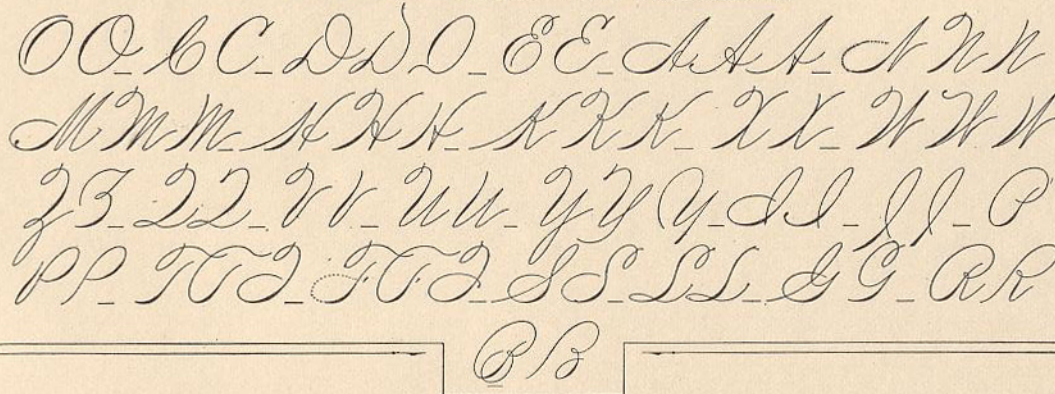 O O - C C - D D D - E E - A A A - N N N
M M M - H H H - K K K - X X - W W W
Z Z - Q Q - V V - U U - Y Y Y - I I - J J - P
P P - T T T - F F F - S S - L L - G G - R R
B B